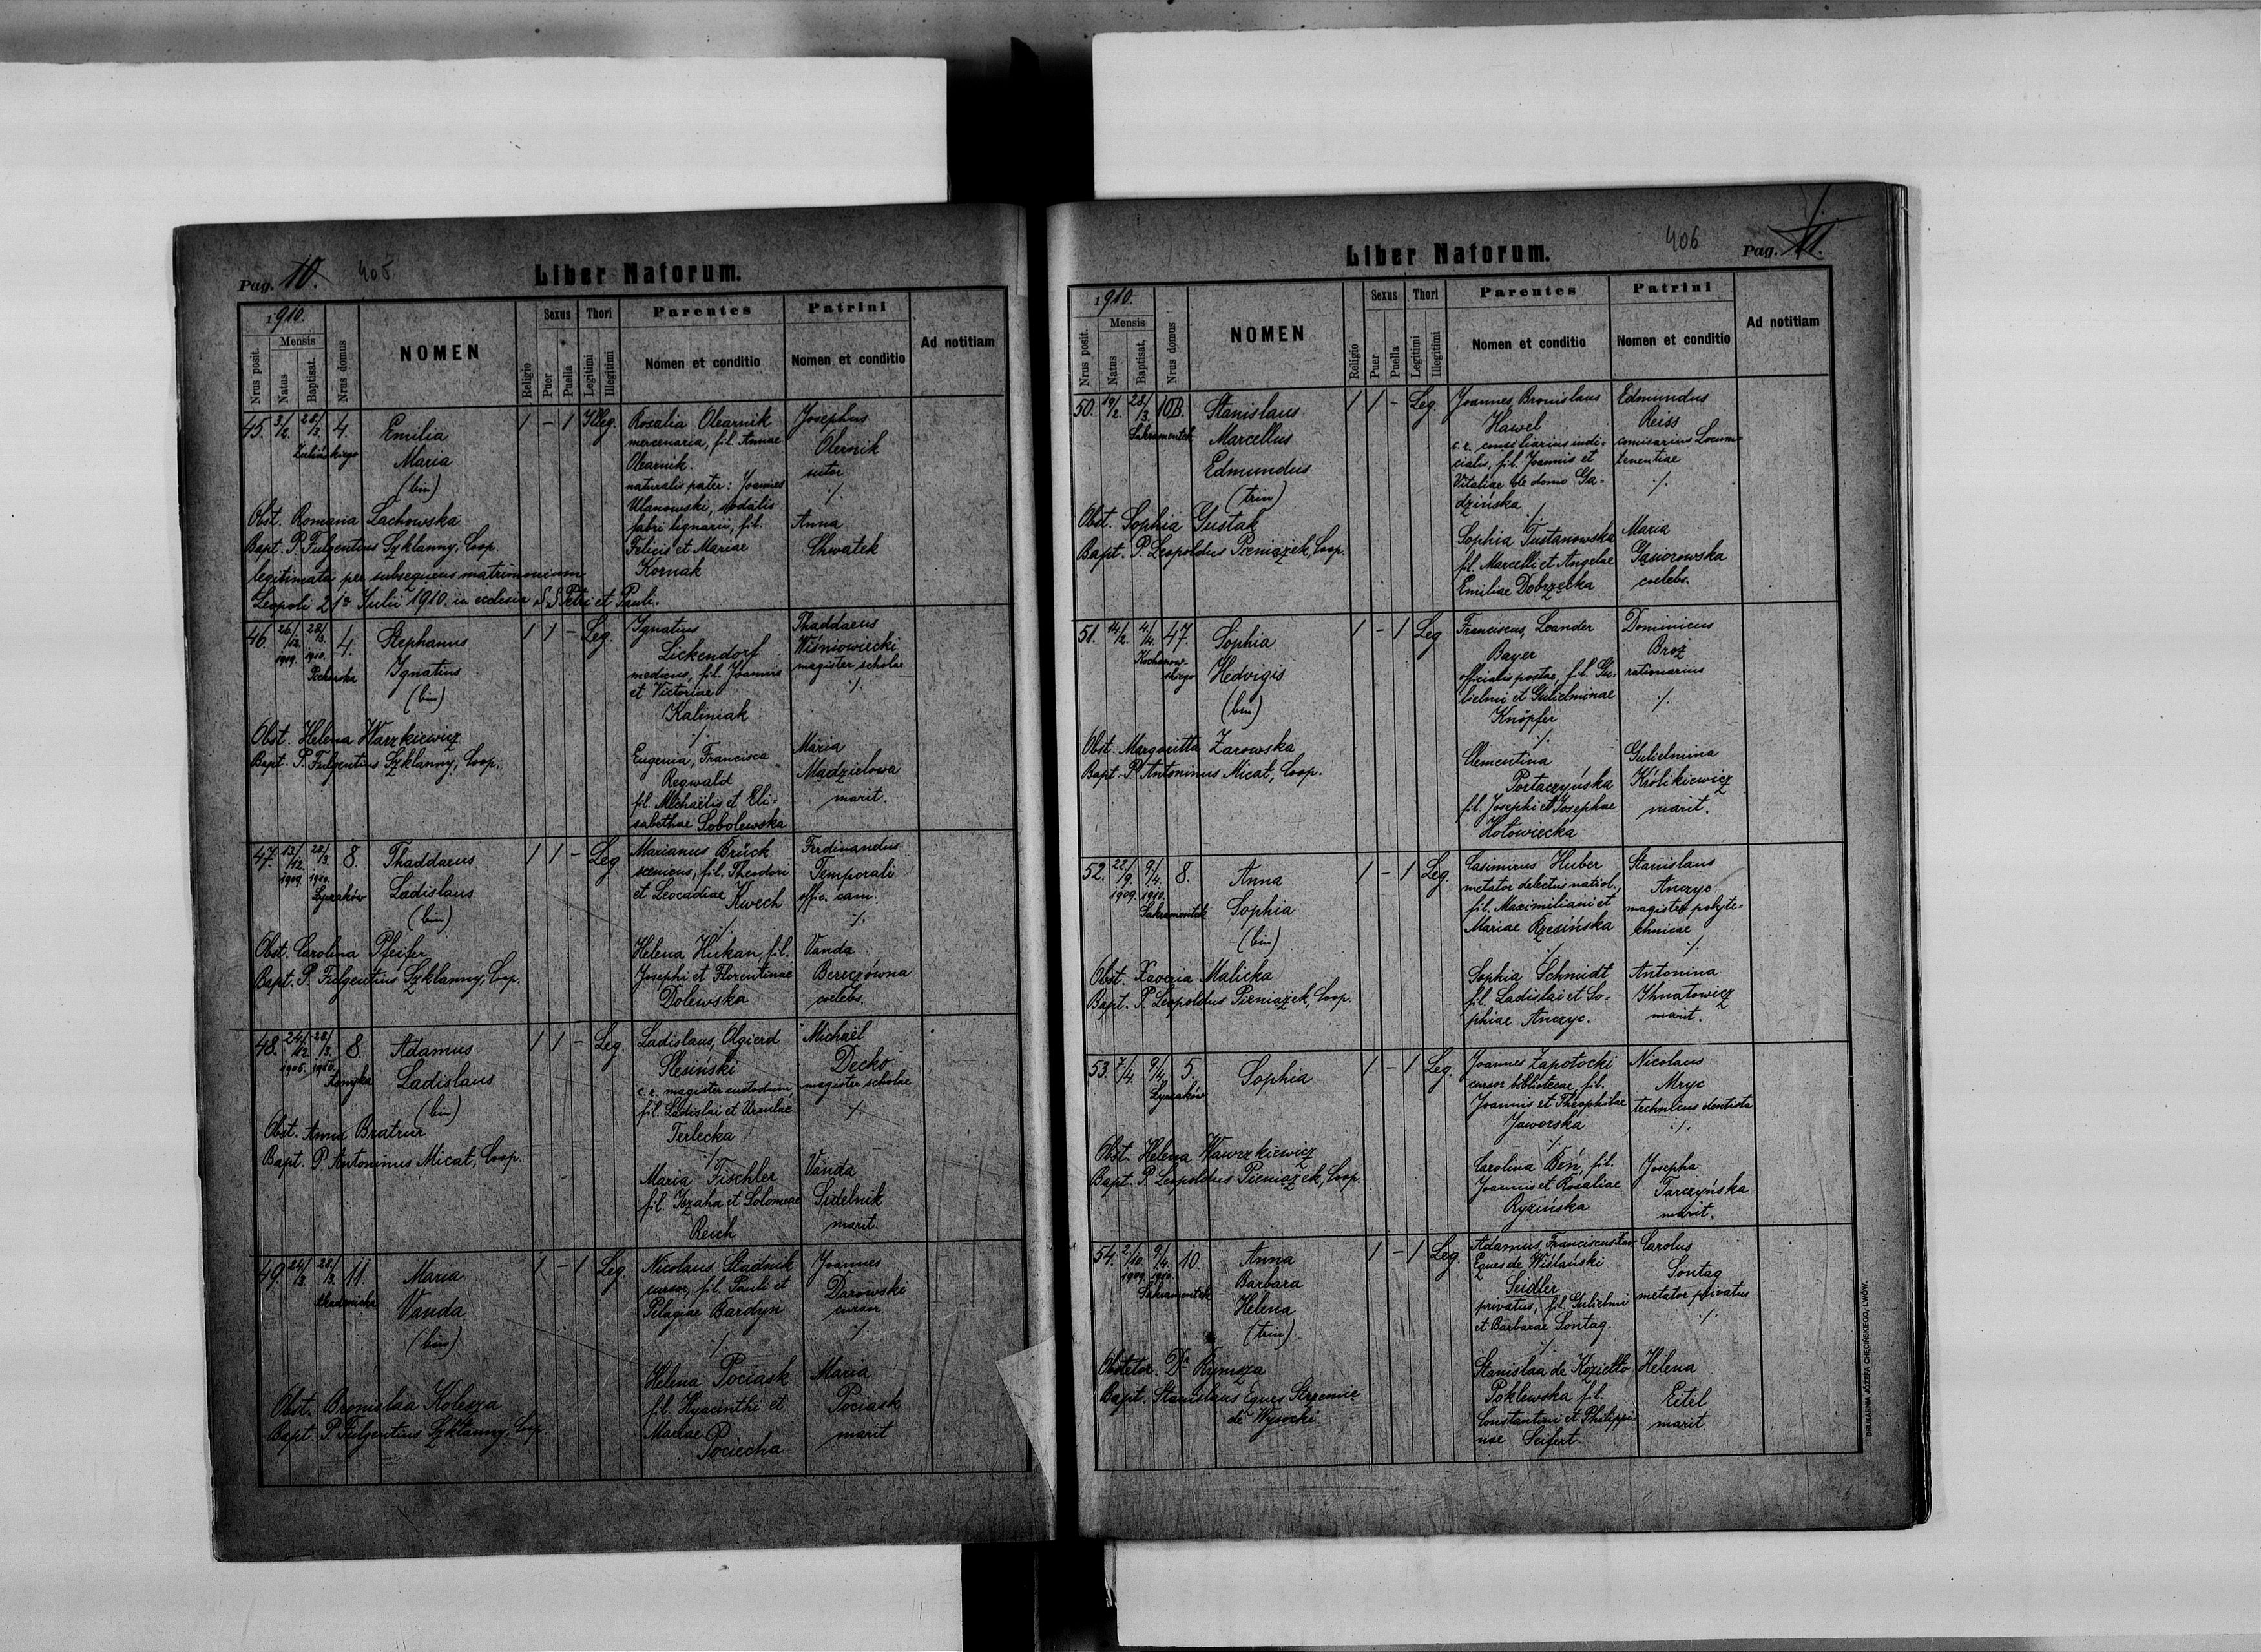 Pag. 10. 405
Liber Natorum.
1910.
Nrus posit.
Mensis
Natus
Baptisat.
Nrus domus
NOMEN
Religio
Sexus
Puer
Puella
Thori
Legitimi
Illegitimi
Parentes
Nomen et conditio
Patrini
Nomen et conditio
Ad notitiam
45. 3/2. 28/3. 4.
Zulińskiego
Emilia
Maria
(bin)
1 - 1 Illeg.
Rosalia Olearnik
mercenaria, fil. Annae
Olearnik.
naturalis pater: Joannes
Ulanowski, sodalis
fabri lignarii, fil.
Felicis et Mariae
Kornak
Josephus
Olernik
sutor
./.
Anna
Chwatek
Obst. Romana Lachowska
Bapt. P. Fulgentius Szklanny, Coop.
legitimata per subsequens matrimonium
Leopoli 21a Julii 1910 in ecclesia S.S. Petri et Pauli.
46. 26/12. 1909. 28/3. 1910. 4.
Piekarska
Stephanus
Ignatius
(bin)
1 1 - Leg.
Ignatius
Lickendorf
medicus, fil. Joannis
et Victoriae
Kaliniak
./.
Eugenia, Francisca
Regwald
fil. Michaëlis et Eli-
sabethae Sobolewska
Thaddaeus
Wiśniowiecki
magister scholae
./.
Maria
Madzielowa
marit.
Obst. Helena Warzkiewicz
Bapt. P. Fulgentius Szklanny, Coop.
47. 13/12. 1909. 28/3. 1910. 8.
Łyczaków
Thaddaeus
Ladislaus
(bin)
1 1 - Leg
Marianus Brück
scenicus, fil. Theodori
et Leocadiae Kwech
./.
Helena Hukan, fil.
Josephi et Florentinae
Dolewska
Ferdinandus
Temporali
offic. cam.
./.
Vanda
Bereczówna
coelebs.
Obst. Carolina Pfeifer
Bapt. P. Fulgentius Szklanny, Coop.
48. 24/12. 1905. 28/3. 1910. 8.
Asnyka
Adamus
Ladislaus
(bin)
1 1 - Leg.
Ladislaus, Olgierd
Slesiński
c. r. magister custodum,
fil. Ladislai et Ursulae
Terlecka
./.
Maria Fischler
fil. Izaha et Solomeae
Reich
Michaël
Decko
magister scholae
./.
Vanda
Sidelnik
marit.
Obst. Anna Bratrur
Bapt. P. Antoninus Micat, Coop.
49. 24/3. 28/3. 11.
Akademicka
Maria
Vanda
(bin)
1 - 1 Leg
Nicolaus Stadnik
cursor, fil. Pauli et
Pelagiae Bardyn
./.
Helena Pociask
fil. Hyacinthi et
Mariae
Pociecha
Joannes
Darowski
cursor
./.
Maria
Pociask
marit
Obst. Bronislaa Kolesza
Bapt. P. Fulgentius Szklanny, Coop.
Liber Natorum.
406
Pag. 11.
1910.
Nrus posit.
Mensis
Natus
Baptisat.
Nrus domus
NOMEN
Religio
Sexus
Puer
Puella
Thori
Legitimi
Illegitimi
Parentes
Nomen et conditio
Patrini
Nomen et conditio
Ad notitiam
50. 19/2. 28/3. 10B.
Sakramentek
Stanislaus
Marcellus
Edmundus
(trin)
1 1 - Leg.
Joannes, Bronislaus
Hawel
c. r. consiliarius iudi-
cialis, fil. Joannis et
Vitaliae de domo Ga-
dzińska
./.
Sophia Tustanowska
fil. Marcelli et Angelae
Emiliae Dobrzebka
Edmundus
Reiss
comisarius Locum-
tenentiae
./.
Maria
Gasiorowska
coelebs.
Obst. Sophia Gustak
Bapt. P. Leopoldus Pieniążek, Coop.
51. 14/2. 4/4. 47.
Kochanowskiego
Sophia
Hedvigis
(bin)
1 - 1 Leg
Franciscus, Leander
Bayer
officialis postae, fil. Gu-
lielmi et Gulielminae
Knöpfer
./.
Clementina
Portaczyńska
fil. Josephi et Josephae
Hołowiecka
Dominicus
Broż
rationarius
./.
Gulielmina
Królikiewicz
marit.
Obst. Margaritta Żarowska
Bapt. P. Antoninus Micat, Coop.
52. 22/9. 1909. 9/4. 1910. 8.
Sakramentek
Anna
Sophia
(bin)
1 - 1 Leg.
Casimirus Huber
metator delectus natiol.,
fil. Maximiliani et
Mariae Rzesińska
./.
Sophia Schmidt
fil. Ladislai et So-
phiae Anczyc.
Stanislaus
Anczyc
magister polyte-
chnicae
./.
Antonina
Ihnatowicz
marit.
Obst. Xaveria Malicka
Bapt. P. Leopoldus Pieniążek, Coop.
53. 7/4. 9/4. 5.
Łyczaków
Sophia
1 - 1 Leg.
Joannes Zapotocki
cursor bibliotecae, fil.
Joannis et Theophilae
Jaworska
./.
Carolina Beń, fil.
Joannis et Rosaliae
Ryzińska
Nicolaus
Mryc
technicus dentista
./.
Josepha
Tarczyńska
marit.
Obst. Helena Wawrzkiewicz
Bapt. P. Leopoldus Pieniążek, Coop.
54. 2/10. 1909. 9/4. 1910. 10.
Sakramentek
Anna
Barbara
Helena
(trin)
1 - 1 Leg.
Adamus, Franciscus Xav
Eques de Wislański
Seidler
privatus, fil. Gulielmi
et Barbarae Sontag.
./.
Stanislaa de Koziełło
Poklewska fil.
Constantini et Philippi-
nae Seifert.
Carolus
Sontag
metator privatus
./.
Helena
Eitel
marit.
Obstetor. Dr Rymsza
Bapt. Stanislaus Eques Strzemie
de Wysocki
DRUKARNIA JÓZEFA CHĘCIŃSKIEGO, LWÓW.